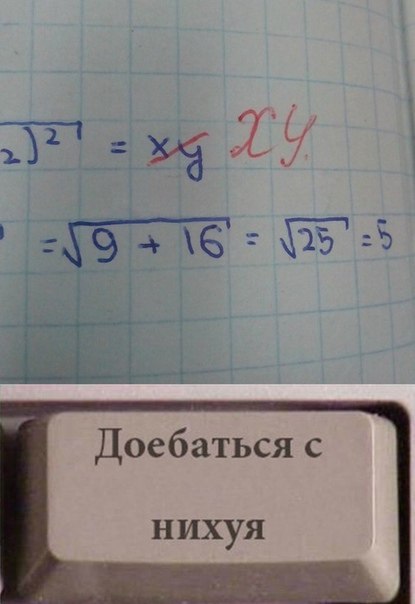 2)² = xy XY
= √9 + 16 = √25 = 5
Доебаться с
нихуя